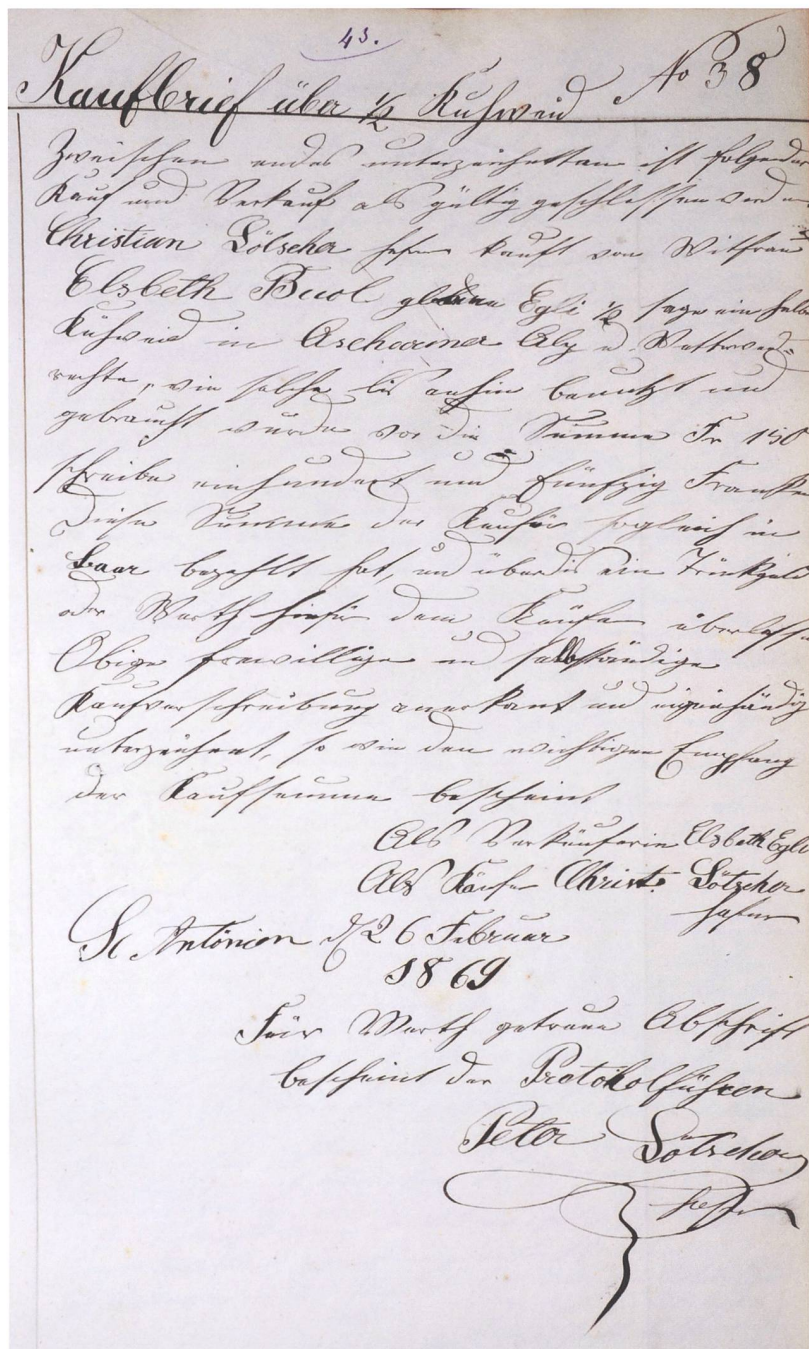 43.
Kaufbrief über 1/2 Kuhweid No 38
Zweischen endes unterzeichetten ist folgender
Kauf und Verkauf als gültig geschlossen
Christian Lötscher kauft von Witfrau
Elsbeth Buol Egli 1/2 sage ein halbe
Kuhweid in Ascharina Alp
rechte, wie solche bis anhin benutzt und
gebraucht wurde vor die Summe Fr 150
schreibe einhundert und fünfzig Franken
Diese Summe der Käufer sogleich in
baar bezahlt hat, und überdis ein Trinkgeld
oder Werth hiefür dem Käufer überlassen
Obige freiwillige und selbständige
Kaufverschreibung anerkant und eigenhändig
unterzeichnet, so wie den richtigen Empfang
der Kaufsumme bescheint
Als Verkäuferin Elsbeth Egli
Als Käufer Christ. Lötscher
St Antönien d 26 Februar
1869
Für Worth getreue Abschrift
bescheint der Protokolführer
Peter Lötscher